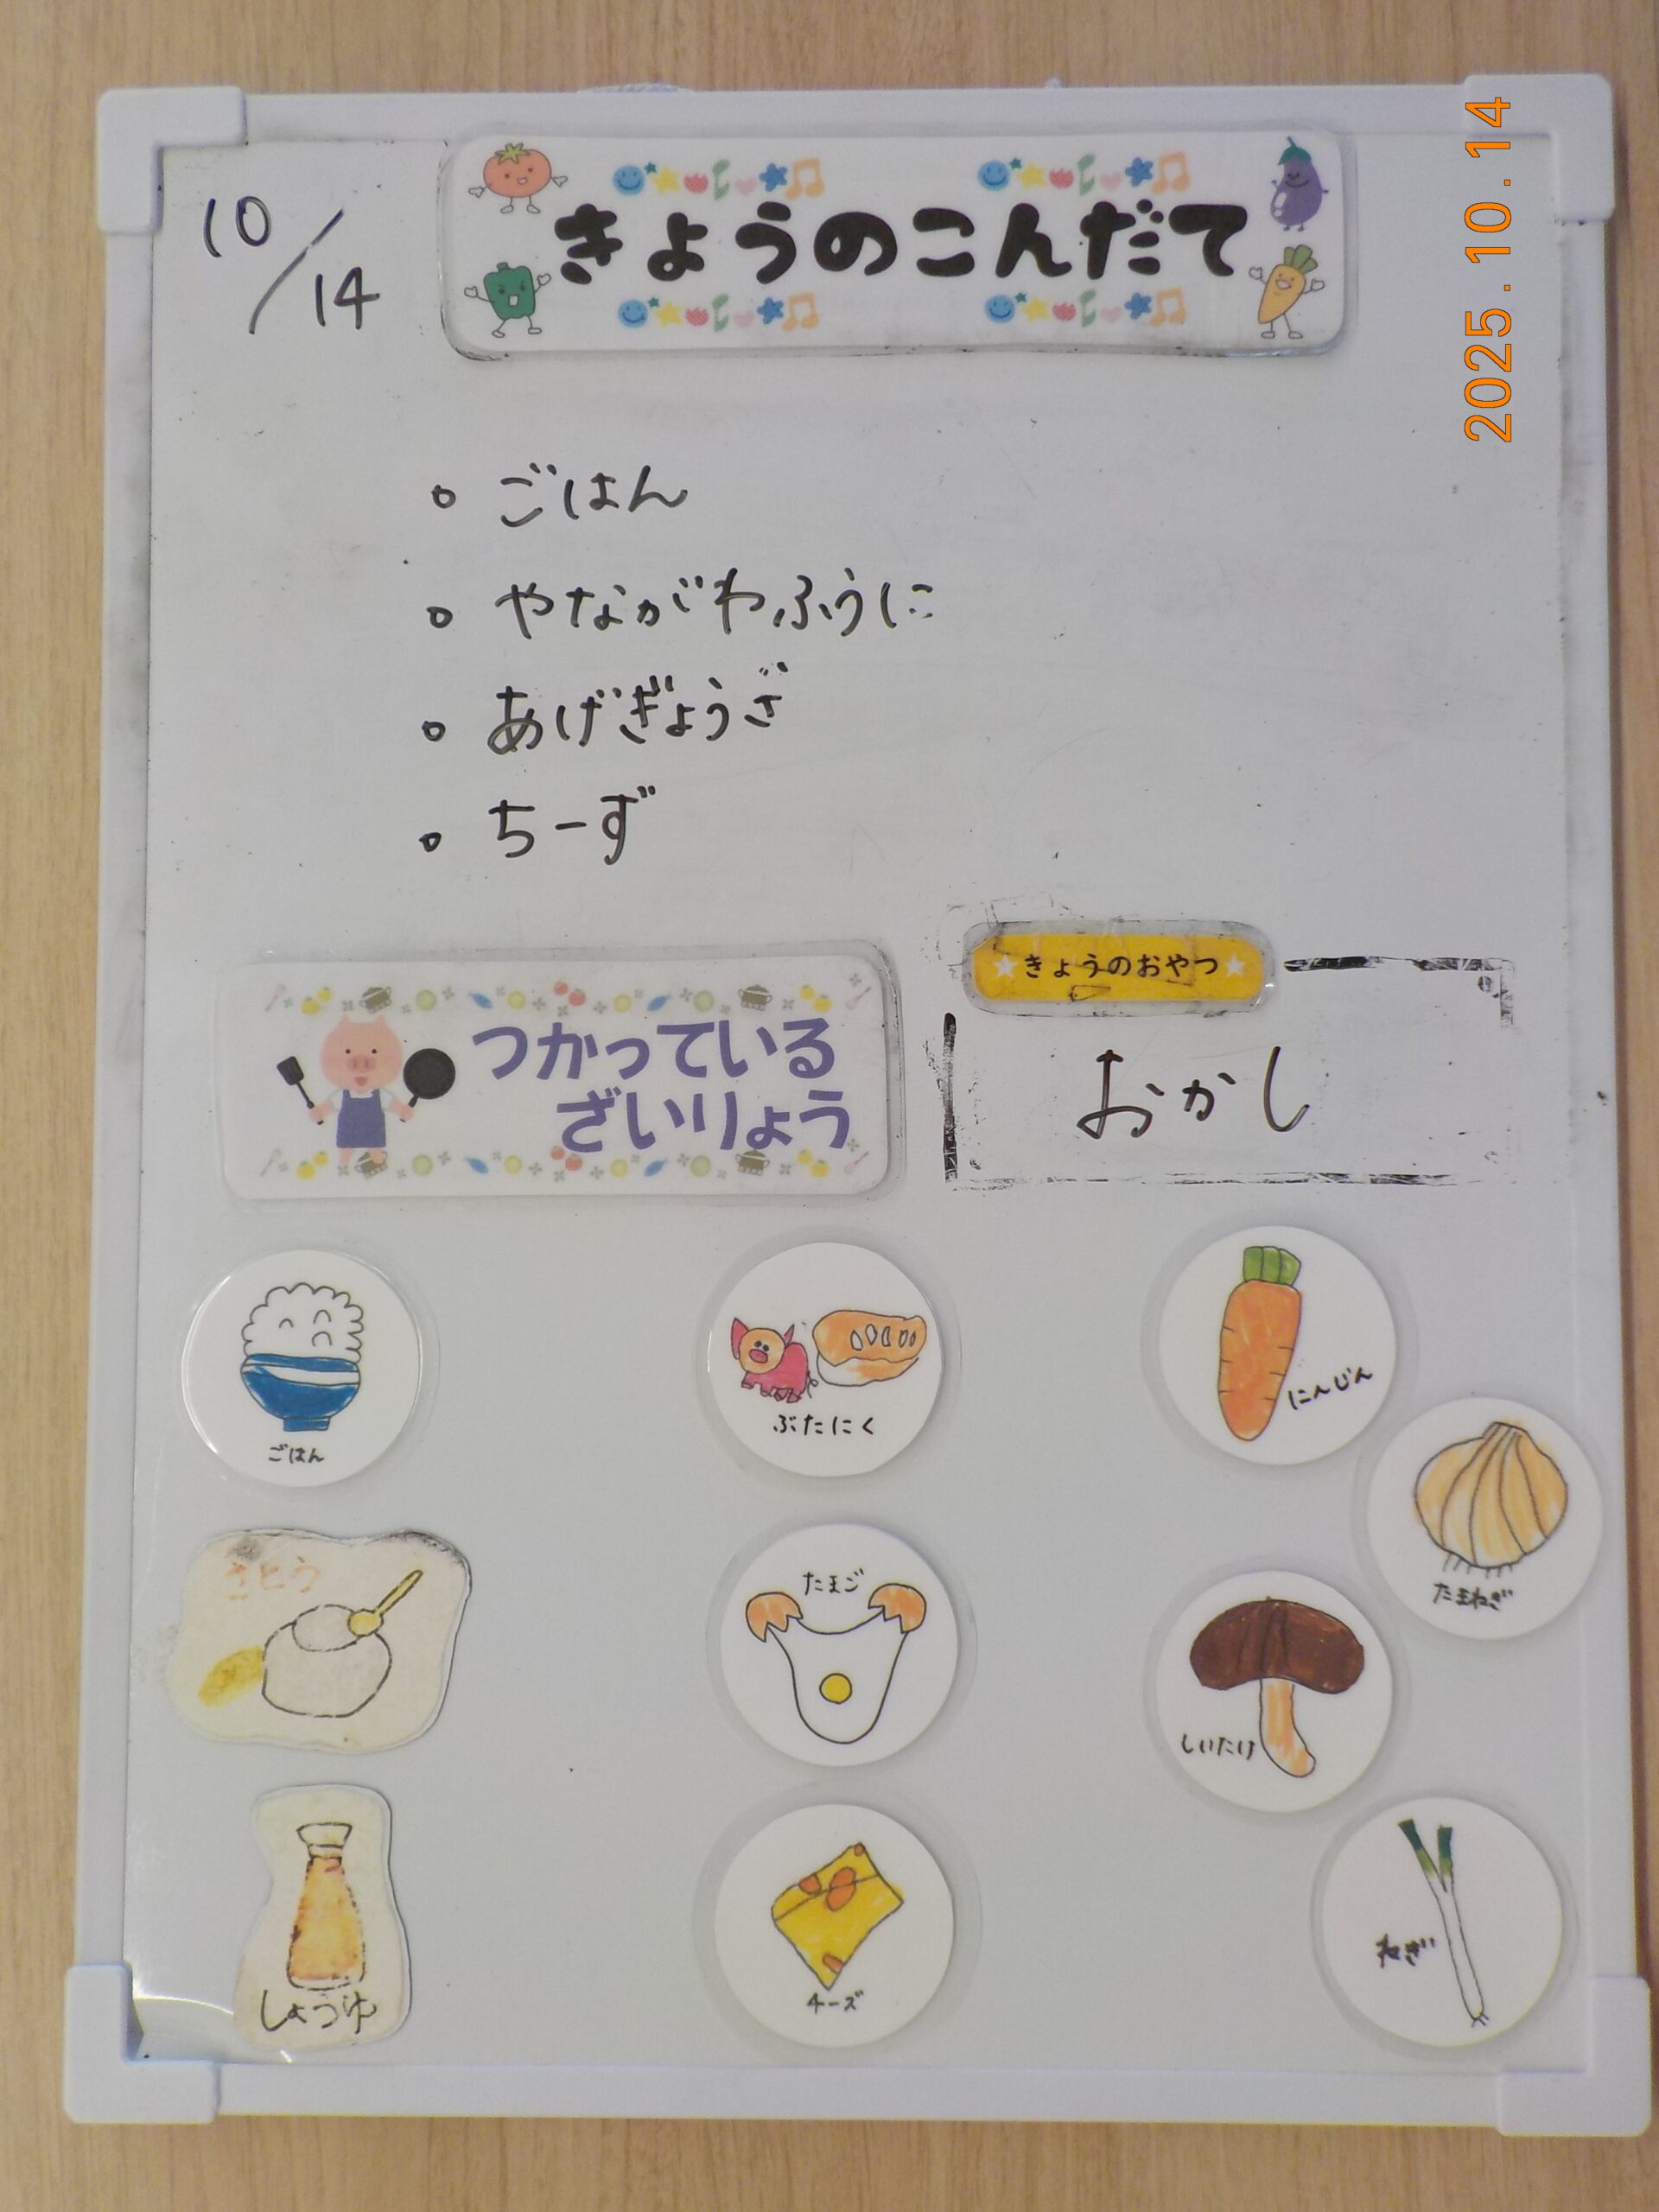 10/14
きょうのこんだて
2025.10.14
。ごはん
。やながわふうに
。あげぎょうざ
。ちーず
★きょうのおやつ★
おかし
つかっている
ざいりょう
ごはん
ぶたにく
にんじん
たまねぎ
さとう
たまご
しいたけ
しょうゆ
チーズ
ねぎ